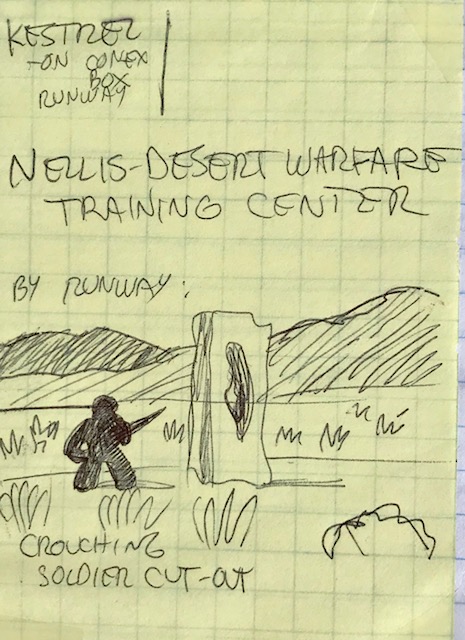 KESTREL
-ON CONEX
BOX
RUNWAY
NELLIS-DESERT WARFARE
TRAINING CENTER
BY RUNWAY:
CROUCHING
SOLDIER CUT-OUT